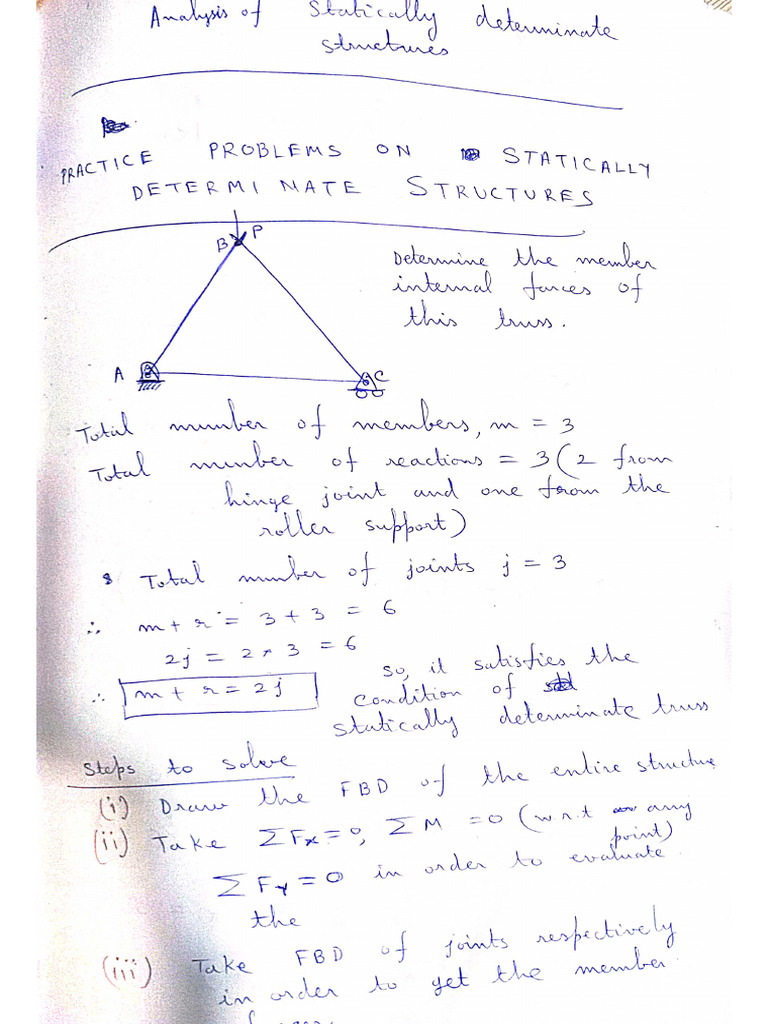 Analysis of Statically determinate
structures
PRACTICE PROBLEMS ON STATICALLY
DETERMINATE STRUCTURES
B P
Determine the member
internal forces of
this truss.
A C
Total number of members, m = 3
Total number of reactions = 3 (2 from
hinge joint and one from the
roller support)
Total number of joints j = 3
∴ m + r = 3 + 3 = 6
2j = 2 * 3 = 6
∴ m + r = 2j
so, it satisfies the
condition of
statically determinate truss
Steps to solve
(i) Draw the FBD of the entire structure
(ii) Take ΣFx = 0, ΣM = 0 (w.r.t any
point)
ΣFy = 0 in order to evaluate
the
(iii) Take FBD of joints respectively
in order to get the member